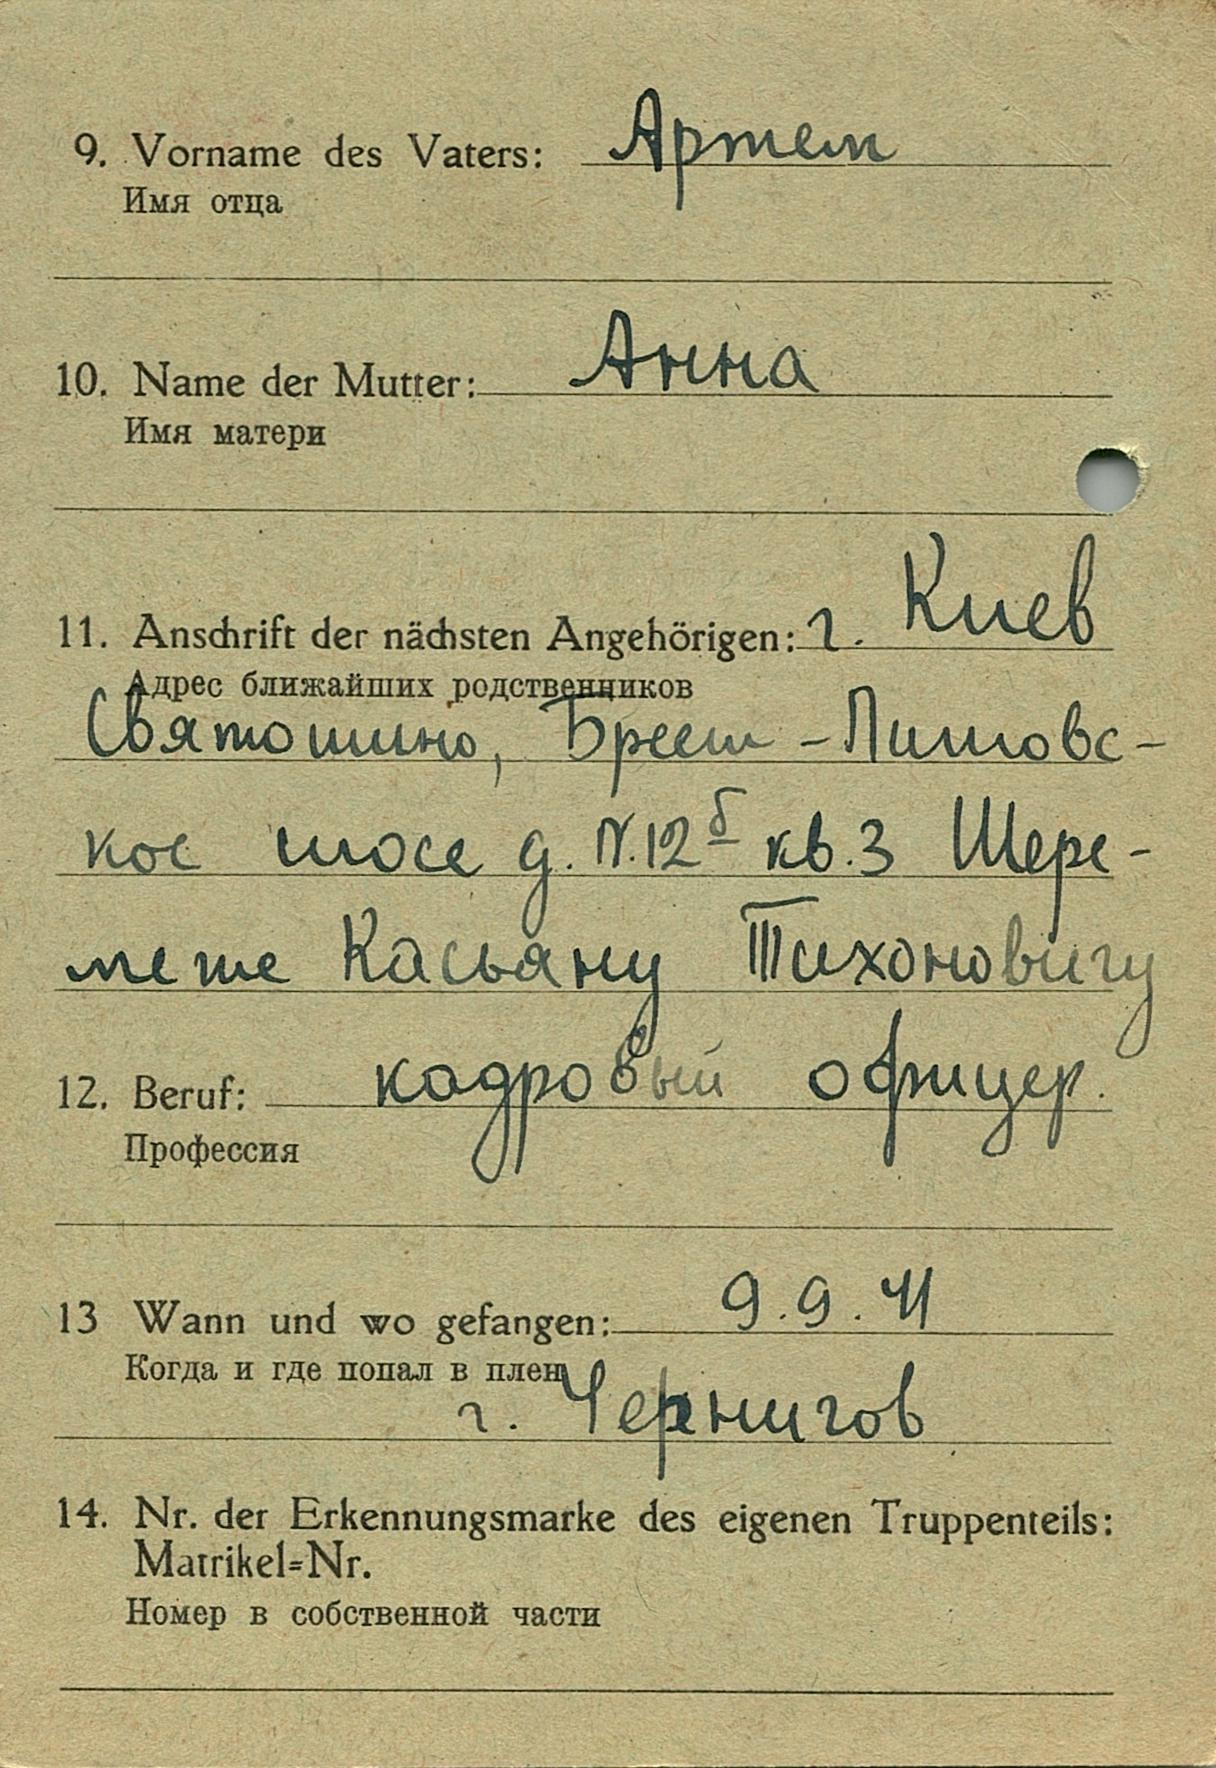 9. Vorname des Vaters: Артем
Имя отца
10. Name der Mutter: Анна
Имя матери
11. Anschrift der nächsten Angehörigen: г. Киев
Адрес ближайших родственников
Святошино, Брест-Литовс-
кое шосе д. N.12б кв.3 Шере-
мете Касьяну Тихоновичу
12. Beruf: кадровый офицер.
Профессия
13 Wann und wo gefangen: 9.9.41
Когда и где попал в плен
г. Чернигов
14. Nr. der Erkennungsmarke des eigenen Truppenteils:
Matrikel=Nr.
Номер в собственной части